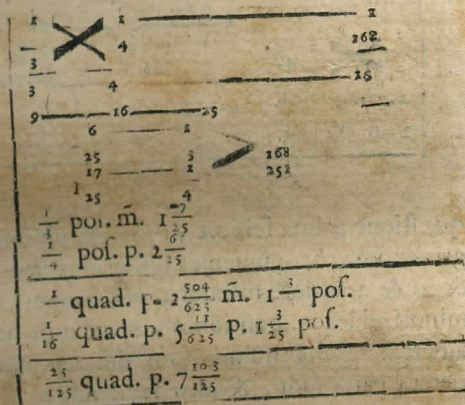 1 1 1
4 168
3
3 4 16
9 16 25
6 1
25 3 168
17 1 252
1 25 4
1/3 pos. m̃. 1 7/25
1/4 pos. p. 2 6/25
quad. p. 2 504/625 m̃. 1 pos.
1/16 quad. p. 5 11/625 p. 1 3/25 pos.
25/125 quad. p. 7 103/125